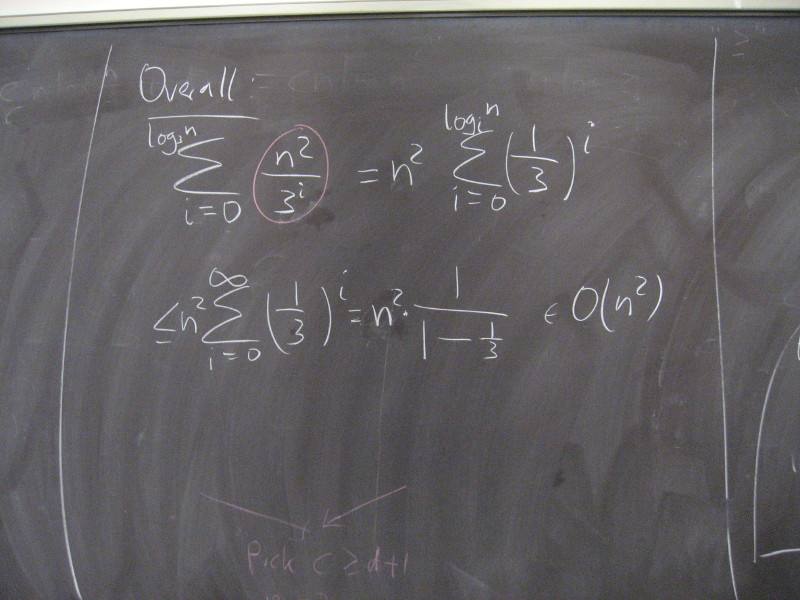 Overall :
\sum_{i=0}^{\log_3 n} \frac{n^2}{3^i} = n^2 \sum_{i=0}^{\log_i n} \left(\frac{1}{3}\right)^i
\leq n^2 \sum_{i=0}^{\infty} \left(\frac{1}{3}\right)^i = n^2 \cdot \frac{1}{1 - \frac{1}{3}} \in O(n^2)
Pick c ≥ d+1
"≥"